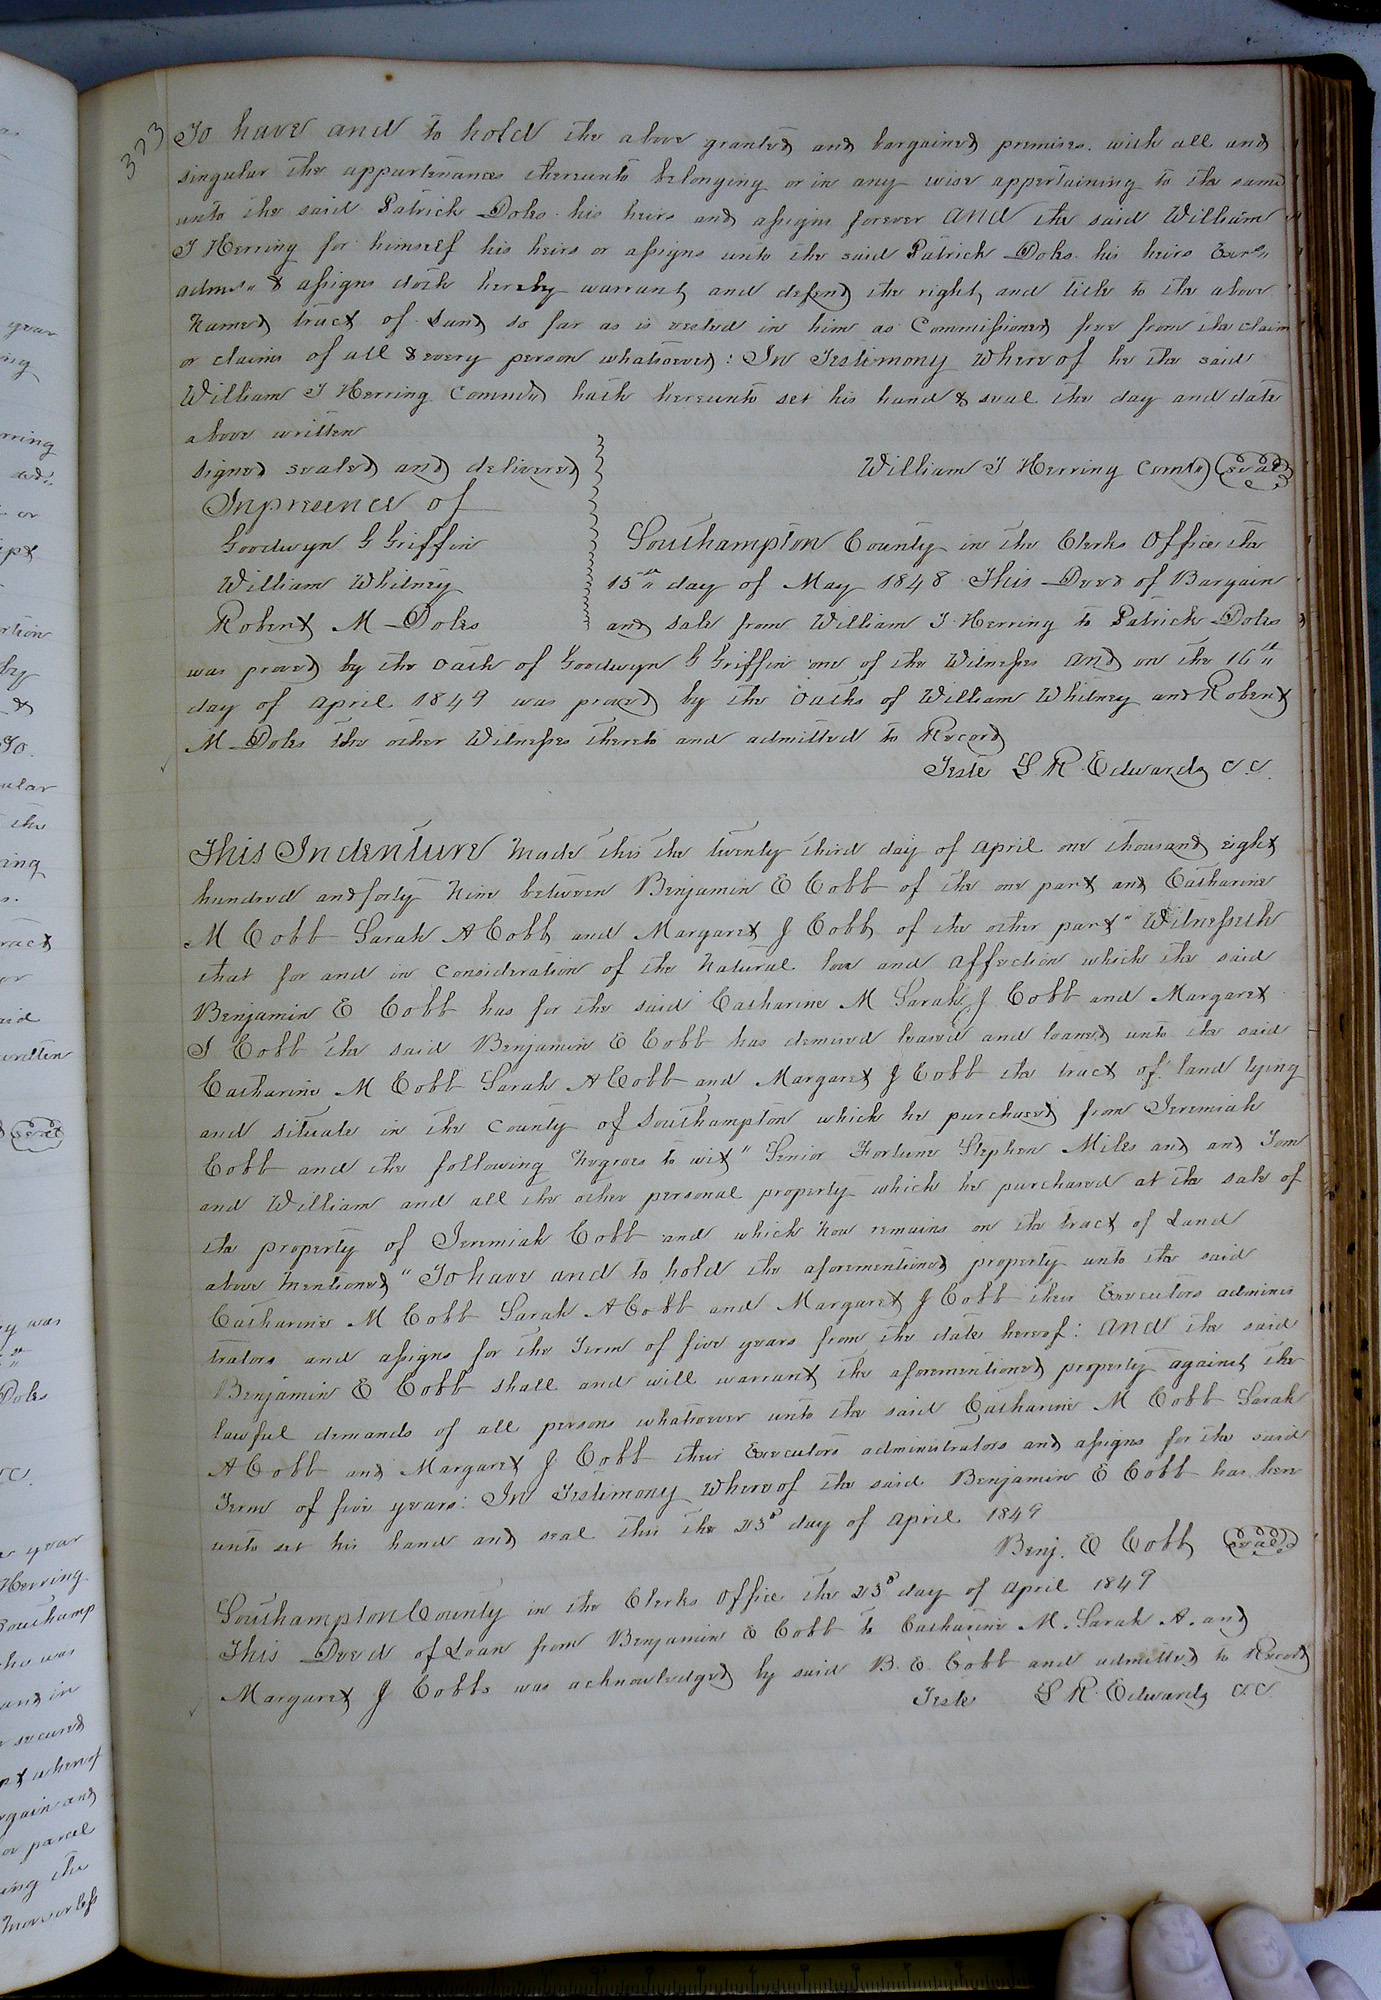 323
To have and to hold the above granted and bargained premises. with all and
singular the appurtenances thereunto belonging or in any wise appertaining to the same
unto the said Patrick Doles his heirs and assigns forever And the said William
J Herring for himself his heirs or assigns unto the said Patrick Doles his heirs Exrs
admrs & assigns doth hereby warrant and defend the right and title to the above
Named tract of Land so far as is vested in him as Commissioner free from the claim
or claims of all & every person whatsoever: In Testimony Whereof he the said
William J Herring Commr hath hereunto set his hand & seal the day and date
above written
Signed sealed and delivered
In presence of
Goodwyn G Griffin
William Whitney
Robert M Doles
William J Herring Comr seal
Southampton County in the Clerks Office the
15th day of May 1848 This Deed of Bargain
and sale from William J Herring to Patrick Doles
was proved by the oath of Goodwyn G Griffin one of the Witnesses And on the 16th
day of April 1849 was proved by the oaths of William Whitney and Robert
M Doles the other Witnesses thereto and admitted to Record
Teste L R Edwards C.C.
This Indenture Made this the twenty third day of April one thousand eight
hundred and forty Nine between Benjamin E Cobb of the one part and Catharine
M Cobb Sarah A Cobb and Margaret J Cobb of the other part" Witnesseth
that for and in consideration of the Natural love and affection which the said
Benjamin E Cobb has for the said Catharine M Sarah J Cobb and Margaret
J Cobb the said Benjamin E Cobb has demised leased and loaned unto the said
Catharine M Cobb Sarah A Cobb and Margaret J Cobb the tract of land lying
and situate in the County of Southampton which he purchased from Jeremiah
Cobb and the following Negroes to wit" Senior Fortune Stephen Miles and and Tom
and William and all the other personal property which he purchased at the sale of
the property of Jeremiah Cobb and which Now remains on the tract of Land
above Mentioned" To have and to hold the aforementioned property unto the said
Catharine M Cobb Sarah A Cobb and Margaret J Cobb their Executors adminis
trators and assigns for the Term of five years from the date hereof: And the said
Benjamin E Cobb shall and will warrant the aforementioned property against the
lawful demands of all persons whatsoever unto the said Catharine M Cobb Sarah
A Cobb and Margaret J Cobb their Executors administrators and assigns for the said
Term of five years: In Testimony Whereof the said Benjamin E Cobb has here
unto set his hand and seal this the 23d day of April 1849
Benj. E Cobb seal
Southampton County in the Clerks Office the 23d day of April 1849
This Deed of Loan from Benjamin E Cobb to Catharine M. Sarah A. and
Margaret J Cobbs was acknowledged by said B. E. Cobb and admitted to Record
Teste L R Edwards C.C.